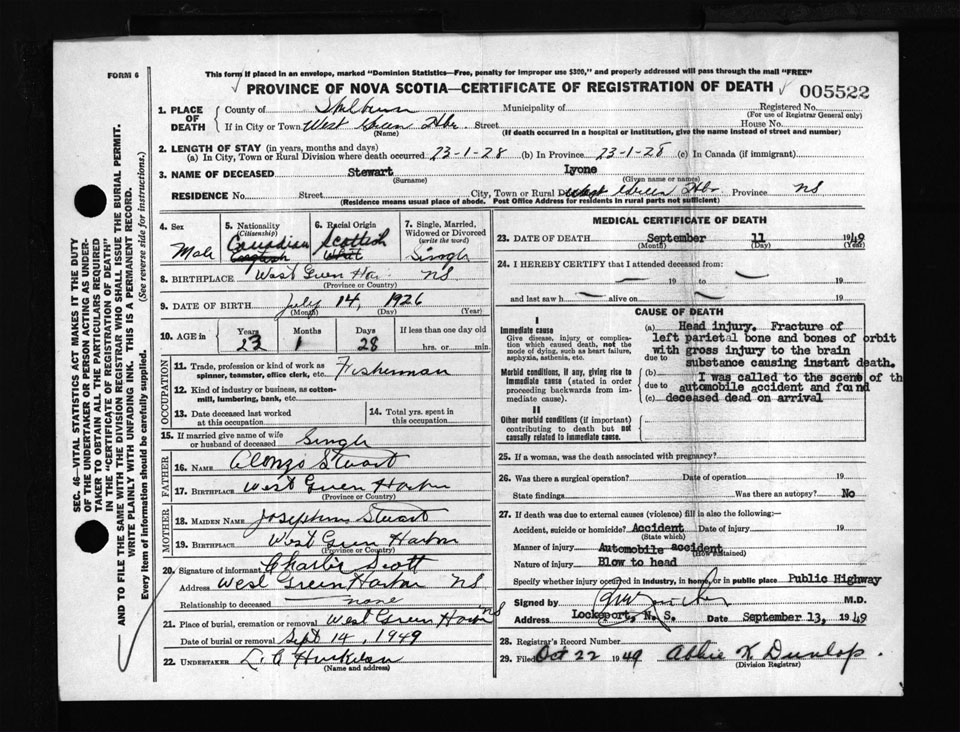 FORM 6
This form if placed in an envelope, marked "Dominion Statistics—Free, penalty for improper use $300," and properly addressed will pass through the mail "FREE"
PROVINCE OF NOVA SCOTIA—CERTIFICATE OF REGISTRATION OF DEATH 005522
SEC. 46—VITAL STATISTICS ACT MAKES IT THE DUTY
OF THE UNDERTAKER OR PERSON ACTING AS UNDER-
TAKER TO OBTAIN ALL THE PARTICULARS REQUIRED
IN THE "CERTIFICATE OF REGISTRATION OF DEATH"
AND TO FILE THE SAME WITH THE DIVISION REGISTRAR WHO SHALL ISSUE THE BURIAL PERMIT.
WRITE PLAINLY WITH UNFADING INK. THIS IS A PERMANENT RECORD.
Every item of information should be carefully supplied. (See reverse side for instructions.)
1. PLACE OF DEATH County of Municipality of Registered No.
(For use of Registrar General only)
If in City or Town West Green Hbr. Street House No.
(Name) (If death occurred in a hospital or institution, give the name instead of street and number)
2. LENGTH OF STAY (in years, months and days)
(a) In City, Town or Rural Division where death occurred 23-1-28 (b) In Province 23-1-28 (c) In Canada (if immigrant)
3. NAME OF DECEASED Stewart Lyone
(Surname) (Given name or names)
RESIDENCE No. Street City, Town or Rural West Green Hbr Province NS
(Residence means usual place of abode. Post Office Address for residents in rural parts not sufficient)
4. Sex Male
5. Nationality (Citizenship) Canadian English
6. Racial Origin Scottish
7. Single, Married, Widowed or Divorced (write the word) Single
8. BIRTHPLACE West Green Har. NS
(Province or Country)
9. DATE OF BIRTH July 14, 1926
(Month) (Day) (Year)
10. AGE in Years 23 Months 1 Days 28 If less than one day old hrs. or min.
OCCUPATION
11. Trade, profession or kind of work as spinner, teamster, office clerk, etc. Fisherman
12. Kind of industry or business, as cotton-mill, lumbering, bank, etc.
13. Date deceased last worked at this occupation
14. Total yrs. spent in this occupation
15. If married give name of wife or husband of deceased Single
FATHER
16. NAME Alonzo Stuart
17. BIRTHPLACE West Green Harbor
(Province or Country)
MOTHER
18. MAIDEN NAME Josephine Stuart
19. BIRTHPLACE West Green Harbor
(Province or Country)
20. Signature of informant Charlie Scott
Address West Green Harbor NS
Relationship to deceased none
21. Place of burial, cremation or removal West Green Harbor NS
Date of burial or removal Sept 14, 1949
22. UNDERTAKER
(Name and address)
MEDICAL CERTIFICATE OF DEATH
23. DATE OF DEATH September 11 1949
(Month) (Day) (Year)
24. I HEREBY CERTIFY that I attended deceased from:
19 to 19
and last saw h alive on 19
CAUSE OF DEATH
I
Immediate cause
Give disease, injury or complication which caused death, not the mode of dying, such as heart failure, asphyxia, asthenia, etc.
(a) Head injury. Fracture of
left parietal bone and bones of orbit
with gross injury to the brain
due to substance causing instant death.
Morbid conditions, if any, giving rise to immediate cause (stated in order proceeding backwards from immediate cause).
(b) I was called to the scene of th
due to automobile accident and found
(c) deceased dead on arrival
II
Other morbid conditions (if important) contributing to death but not causally related to immediate cause.
25. If a woman, was the death associated with pregnancy?
26. Was there a surgical operation? Date of operation 19
State findings Was there an autopsy? No
27. If death was due to external causes (violence) fill in also the following:—
Accident, suicide or homicide? Accident Date of injury 19
(State which)
Manner of injury Automobile accident
(How sustained)
Nature of injury Blow to head
Specify whether injury occurred in industry, in home, or in public place Public Highway
Signed by M.D.
Address Lockeport, N. S. Date September 13, 1949
28. Registrar's Record Number
29. Filed Oct 22 1949 Abbie K Dunlop.
(Division Registrar)